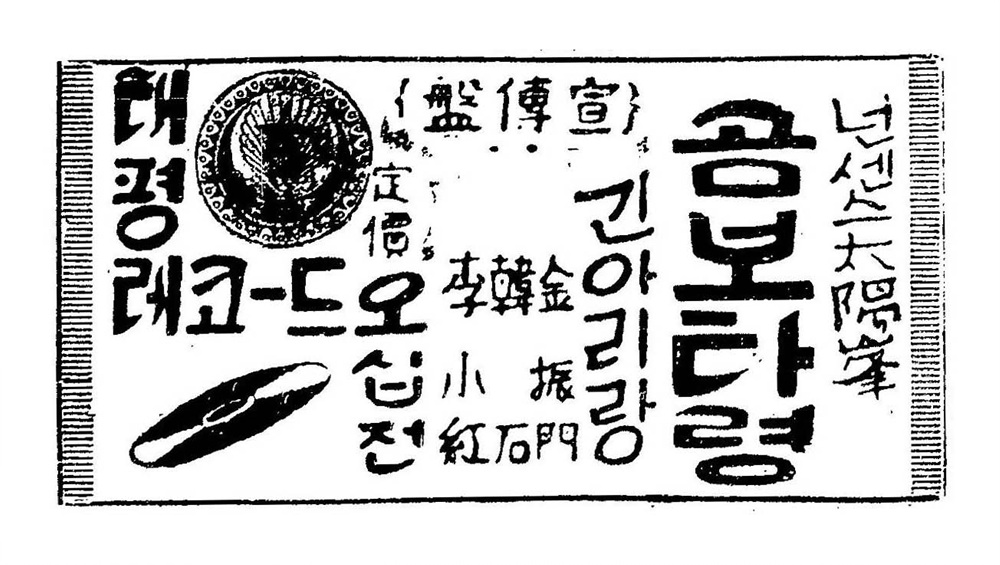 넌센스 太陽峯
곰보타령
긴아리랑
{宣傳盤}
金振門
韓石
李小紅
定價
오십전
태평
래코-드